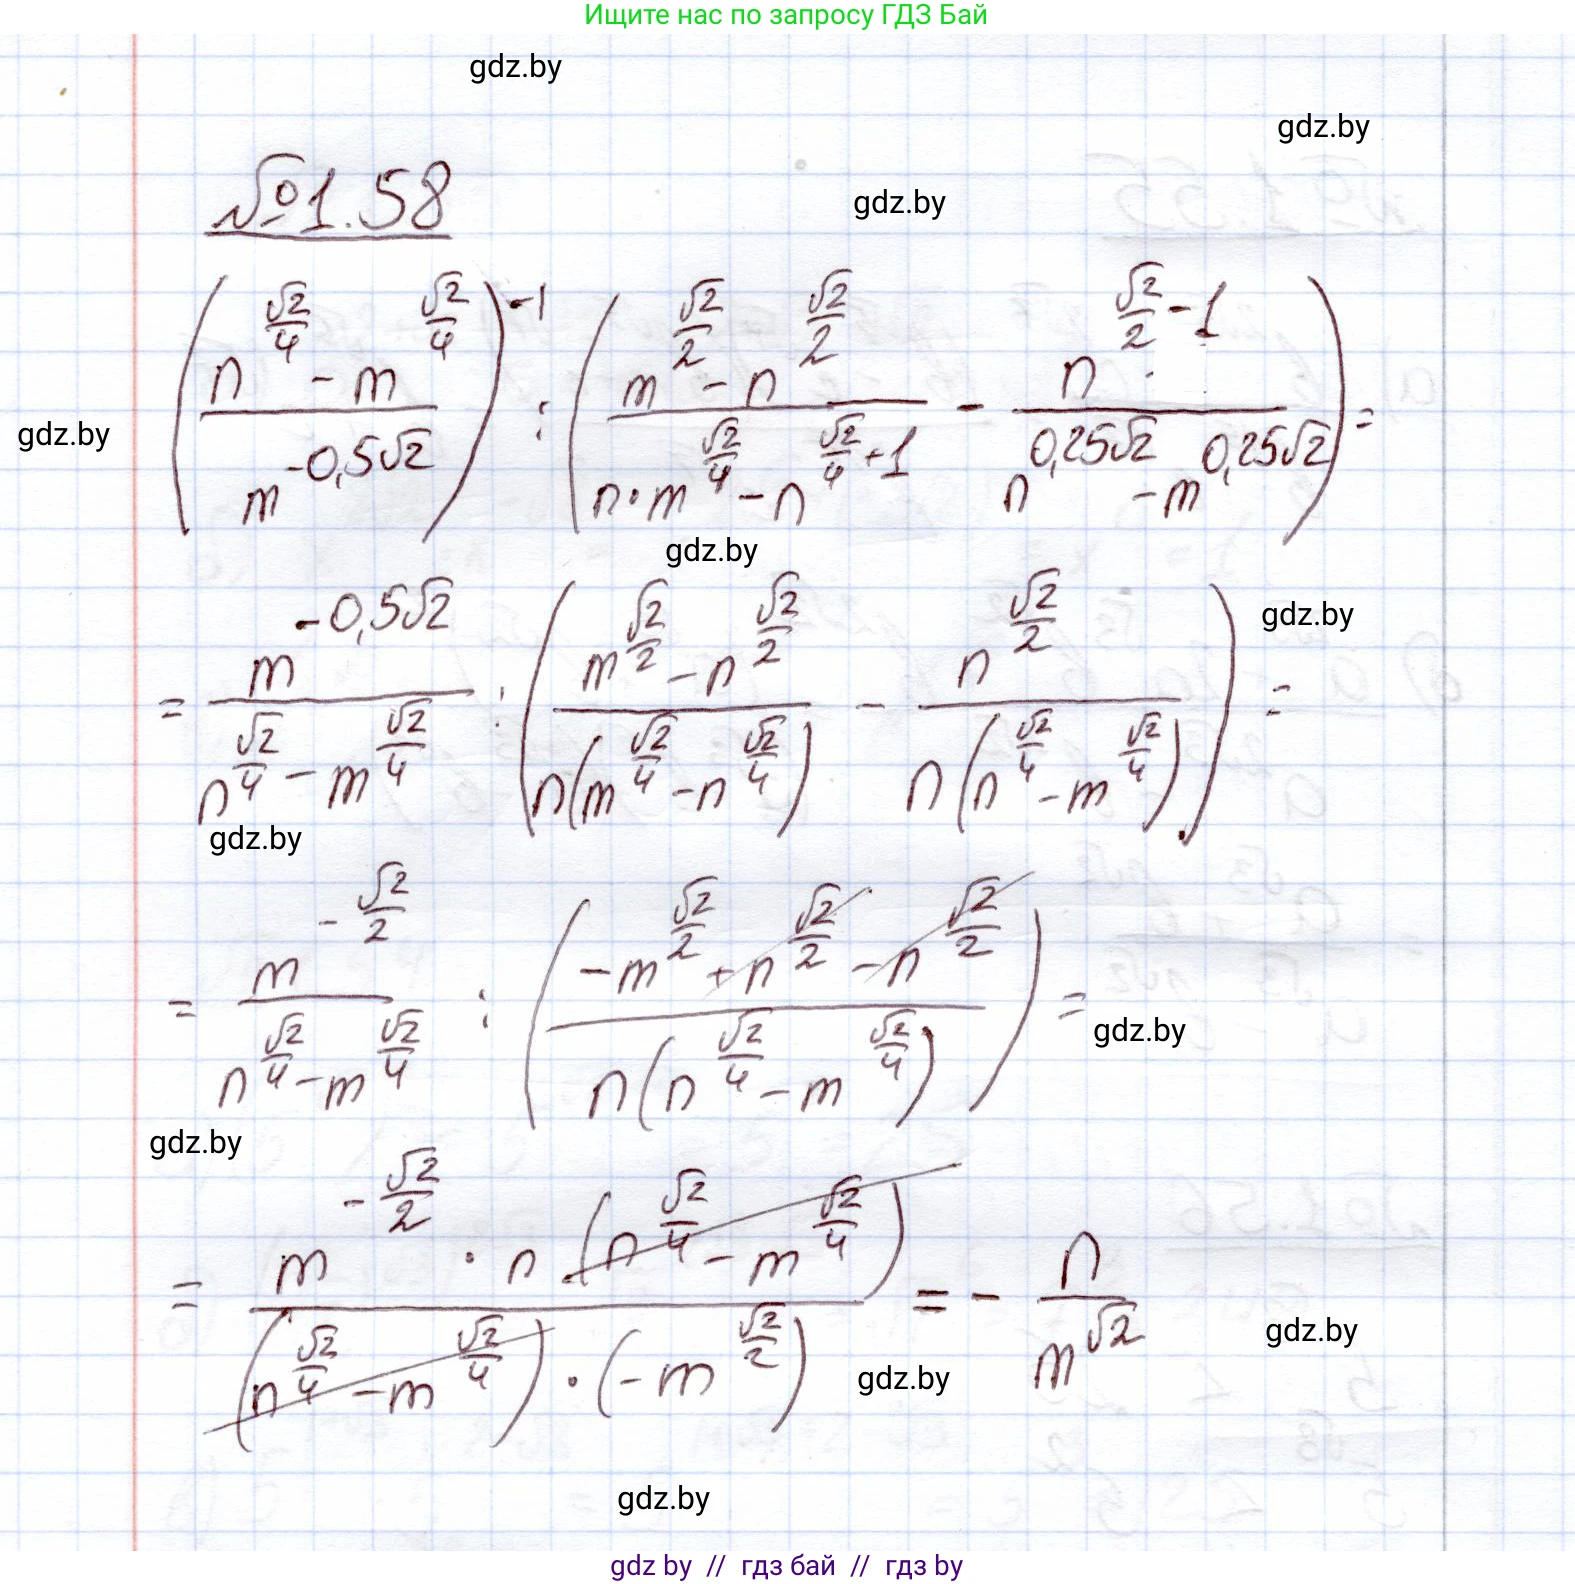 Ищите нас по запросу ГДЗ Бай
gdz.by
gdz.by
gdz.by
№1.58
(n^(√2/4) - m^(√2/4) / m^(-0,5√2))^(-1) : (m^(√2/2) - n^(√2/2) / n·m^(√2/4) - n^(√2/4+1) - n^(√2/2-1) / n^(0,25√2) - m^(0,25√2)) =
gdz.by
gdz.by
= m^(-0,5√2) / n^(√2/4) - m^(√2/4) : (m^(√2/2) - n^(√2/2) / n(m^(√2/4) - n^(√2/4)) - n^(√2/2) / n(n^(√2/4) - m^(√2/4))) =
gdz.by
gdz.by
= m^(-√2/2) / n^(√2/4) - m^(√2/4) : (-m^(√2/2) + n^(√2/2) - n^(√2/2) / n(n^(√2/4) - m^(√2/4))) =
gdz.by
gdz.by
= m^(-√2/2) · n(n^(√2/4) - m^(√2/4)) / (n^(√2/4) - m^(√2/4)) · (-m^(√2/2)) = - n / m^(√2)
gdz.by
gdz.by
gdz.by
gdz by // гдз бай // гдз by